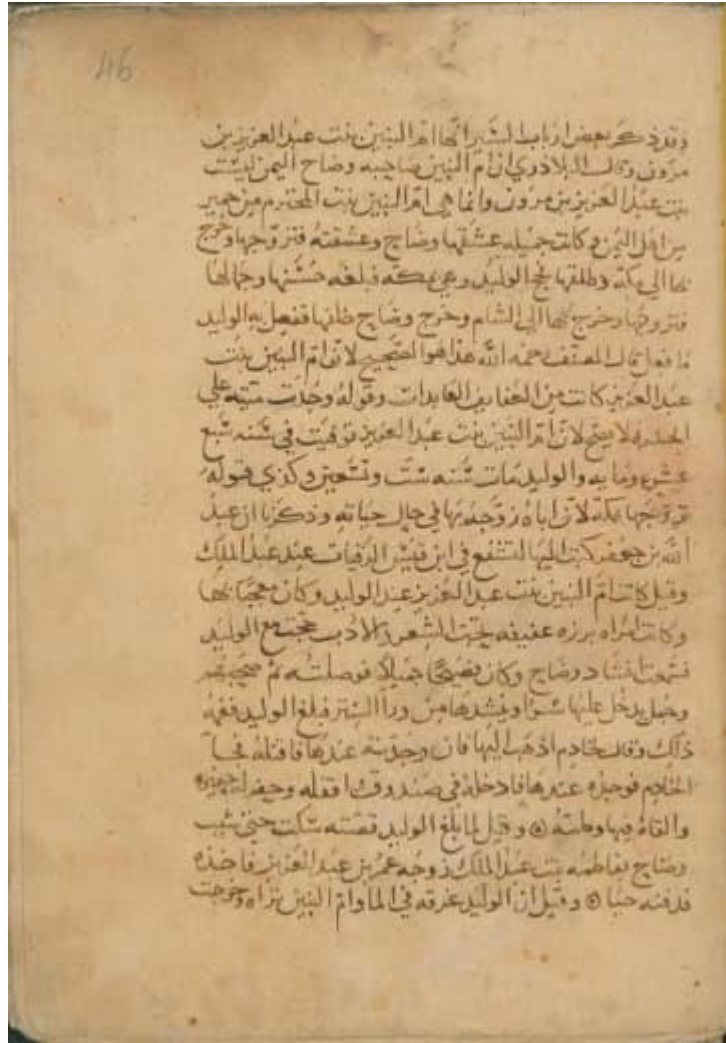 46
وقد ذكر بعض ارباب السير انها ام البنين بنت عبد العزيز بن
مرون وقال البلاذري ان ام البنين صاحبه وضاح اليمن ليست
بنت عبد العزيز بن مرون وانما هي ام البنين بنت المخترم من حمير
من اهل اليمن وكانت جميله عشقها وضاح وعشقته فتزوجها وخرج
بها الي مكة وطلقها فحج الوليد وهي بمكه فبلغه حسنها وجمالها
فتزوجها وخرج بها الي الشام وخرج وضاح خلفها ففعل به الوليد
ما فعل قال المصنف رحمه الله هذا هو الصحيح لان ام البنين بنت
عبد العزيز كانت من العفايف العابدات وقوله وجدت ميته علي
الحفره لا يصح لان ام البنين بنت عبد العزيز توفيت في سنه سبع
عشره ومايه والوليد مات سنه ست وتسعين وكذي قوله
تزوجها بمكة لان اباه زوجه بها في حال حياته وذكرنا ان عبد
الله بن جعفر كتب اليها لتشفع في ابن قيس الرقيات عند عبد الملك
وقيل كانت ام البنين بنت عبد العزيز عند الوليد وكان معجبا بها
وكانت امراه برزه عفيفه تحب الشعر والادب فحجت مع الوليد
فسمعت انشاد وضاح وكان فصيحا جميلا فوصلته ثم صحبهم
وجعل يدخل عليها سرا وينشدها من ورا الستر فبلغ الوليد فغمه
ذلك وقال لخادم اذهب اليها فان وجدته عندها فاقتله فجا
الخادم فوجده عندها فادخله في صندوق واقفله وحفر له حفيره
والقاه فيها وطمه ⊙ وقيل لما بلغ الوليد قصته سكت حتي شبب
وضاح بفاطمه بنت عبد الملك زوجه عمر بن عبد العزيز فاخذه
فدفنه حيا ⊙ وقيل ان الوليد غرقه في الما وام البنين تراه وخرجت